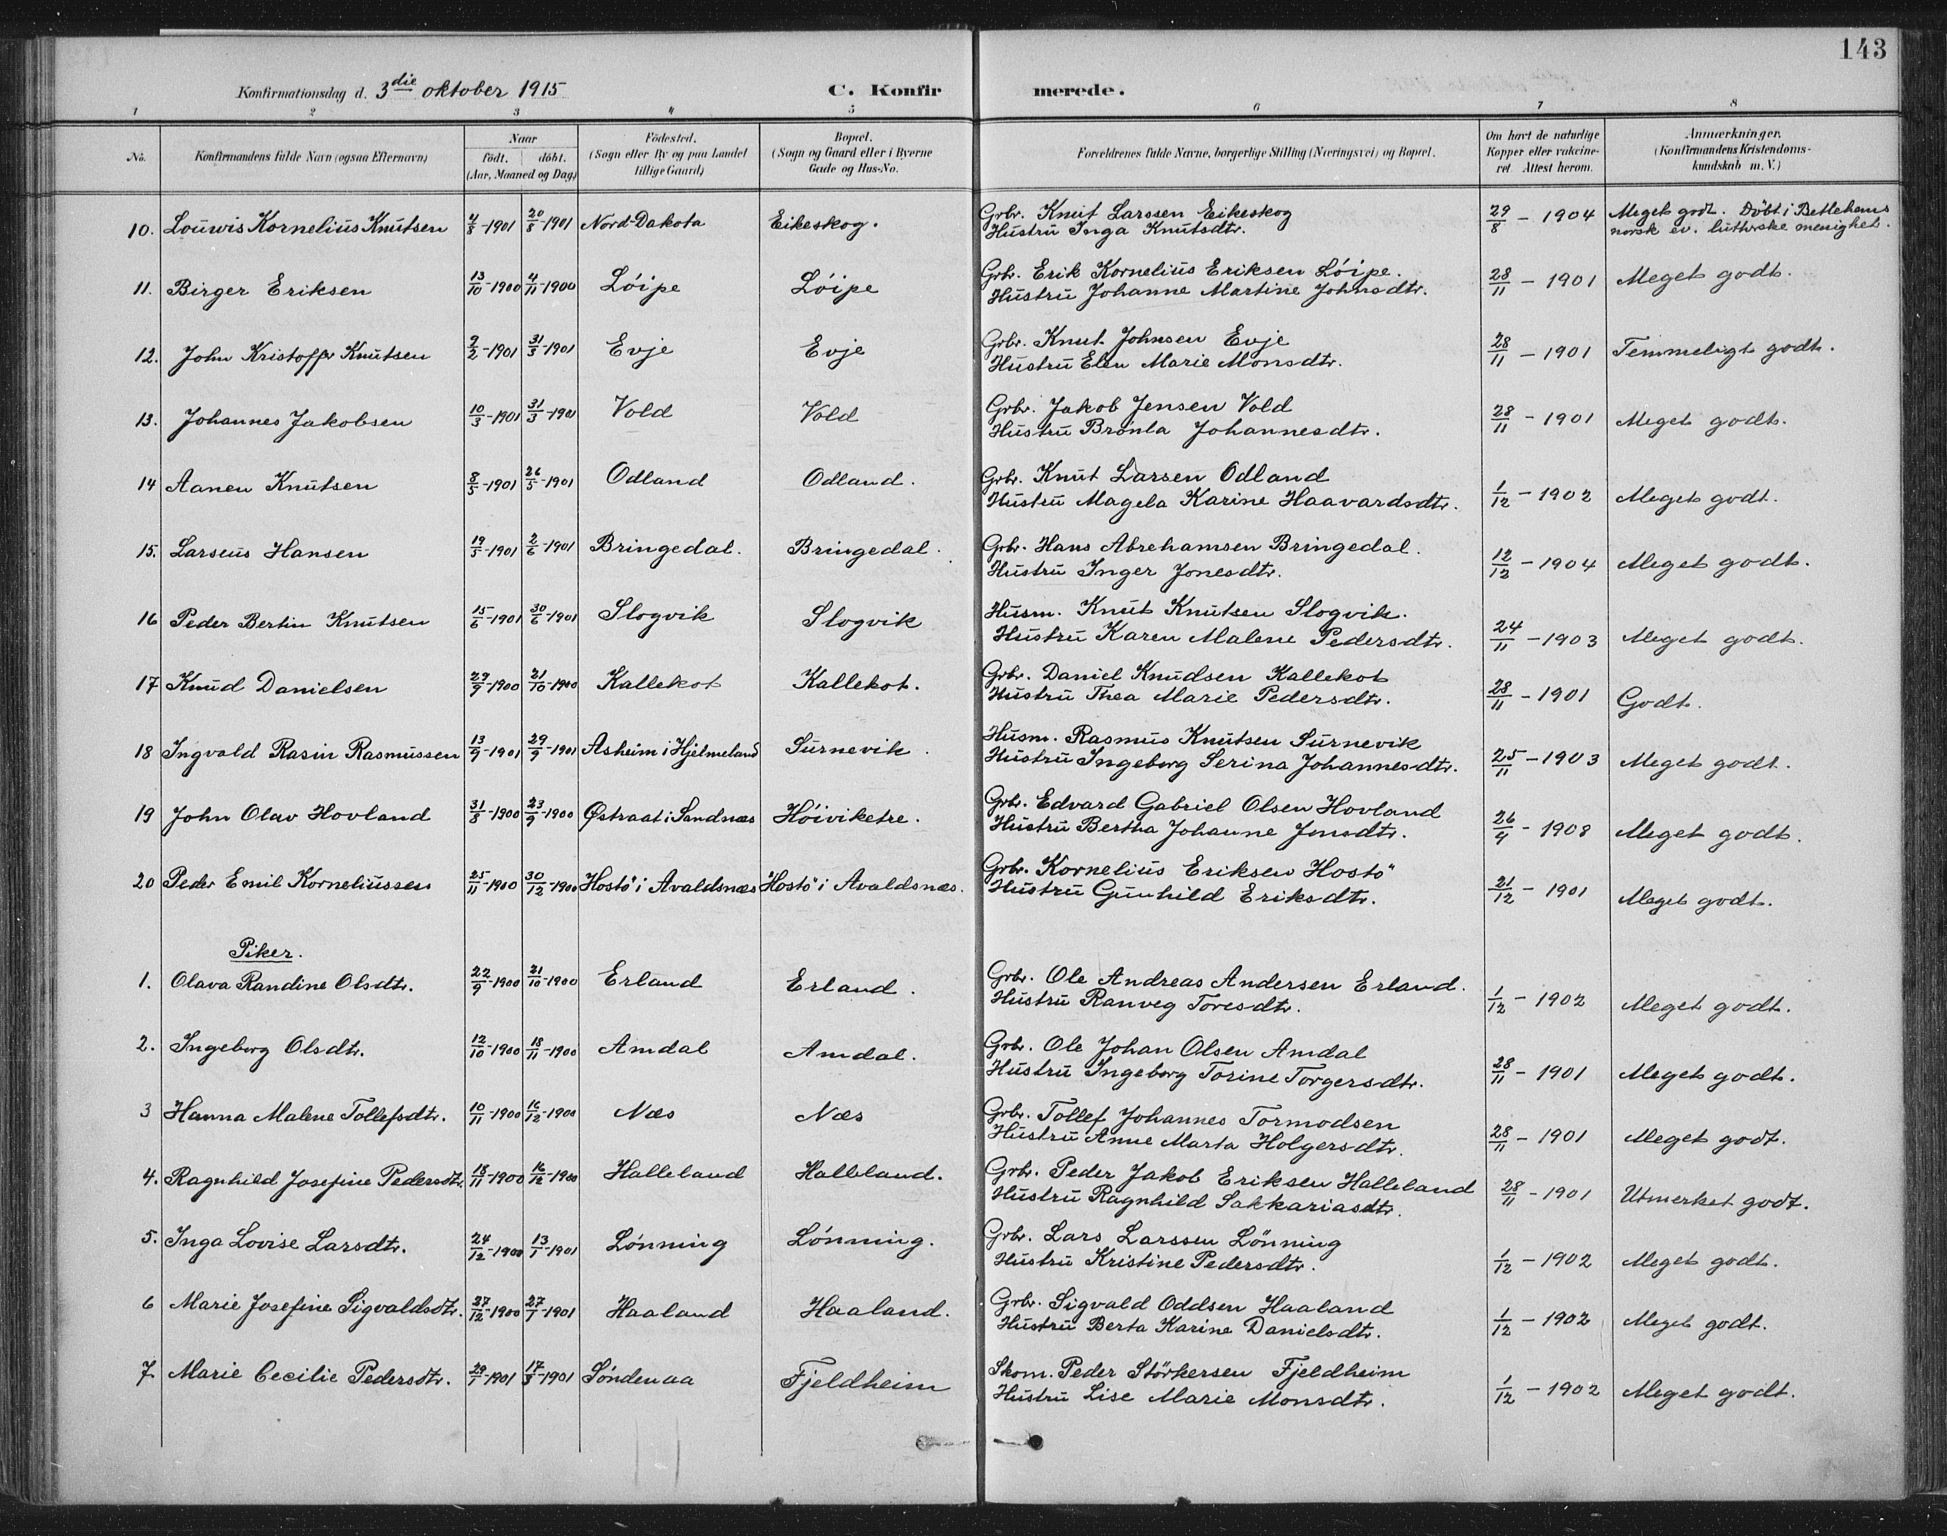 143
Konfirmationsdag d. 3die oktober 1915
C. Konfirmerede.
1 2 3 4 5 6 7 8
No. Konfirmandens fulde Navn (ogsaa Efternavn) Naar født. døbt. (Aar, Maaned og Dag) Fødested. (Sogn eller By og paa Landet tillige Gaard) Bopæl. (Sogn og Gaard eller i Byerne Gade og Hus-No. Forældrenes fulde Navne, borgerlige Stilling (Næringsvei) og Bopæl. Om havt de naturlige Kopper eller vakcineret. Attest herom. Anmærkninger. (Konfirmandens Kristendomskundskab m. V.)
10. Louwis Kornelius Knutsen 4/8-1901 20/8-1901 Nord-Dakota Eikeskog. Grbr. Knut Larssen Eikeskog 29/8-1904 Meget godt. Døbt i Betlehems
Hustru Inga Knutsdtr. norsk ev. lutherske menighet.
11. Birger Eriksen 13/10-1900 4/11-1900 Løipe Løipe Grbr. Erik Kornelius Eriksen Løipe. 28/11-1901 Meget godt.
Hustru Johanne Martine Johnsdtr.
12. John Kristoffer Knutsen 9/2-1901 31/3-1901 Evje Evje Grbr. Knut Johnsen Evje 28/11-1901 Temmeligt godt.
Hustru Elen Marie Monsdtr.
13. Johannes Jakobsen 10/3-1901 31/3-1901 Vold Vold Grbr. Jakob Jensen Vold 28/11-1901 Meget godt.
Hustru Bronla Johannesdtr.
14 Aanen Knutsen 8/5-1901 26/5-1901 Odland Odland. Grbr. Knut Larsen Odland 1/12-1902 Meget godt.
Hustru Magela Karine Haavardsdtr.
15. Larseus Hansen 19/5-1901 2/6-1901 Bringedal. Bringedal. Grbr. Hans Abrehamsen Bringedal. 12/12-1904 Meget godt.
Hustru Inger Jonesdtr.
16 Peder Bertin Knutsen 15/6-1901 30/6-1901 Slogvik Slogvik Husm. Knut Knutsen Slogvik. 24/11-1903 Meget godt.
Hustru Karen Malene Pedersdtr.
17 Knud Danielsen 29/9-1900 21/10-1900 Kallekot Kallekot. Grbr. Daniel Knudsen Kallekot 28/11-1901 Godt.
Hustru Thea Marie Pedersdtr.
18 Ingvald Rasin Rasmussen 13/9-1901 29/9-1901 Asheim i Hjelmeland Surnevik. Husm. Rasmus Knutsen Surnevik 25/11-1903 Meget godt.
Hustru Ingeborg Serina Johannesdtr.
19 John Olav Hovland 31/8-1900 23/9-1900 Østraat i Sandnæs Høiviketre. Grbr. Edvard Gabriel Olsen Hovland 26/9-1908 Meget godt.
Hustru Bertha Johanne Jonsdtr.
20 Peder Emil Korneliussen 25/11-1900 30/12-1900 Hostö i Avaldsnæs Hostö i Avaldsnæs. Grbr. Kornelius Eriksen Hostö 21/12-1901 Meget godt.
Hustru Gunhild Eriksdtr.
Piker.
1. Olava Randine Olsdtr. 22/9-1900 21/10-1900 Erland Erland. Grbr. Ole Andreas Andersen Erland. 1/12-1902 Meget godt.
Hustru Ranveg Toresdtr.
2. Ingeborg Olsdtr. 12/10-1900 18/11-1900 Amdal Amdal. Grbr. Ole Johan Olsen Amdal 28/11-1901 Meget godt.
Hustru Ingeborg Torine Torgersdtr.
3 Hanna Malene Tollefsdtr. 10/11-1900 16/12-1900 Næs Næs Grbr. Tollef Johannes Tormodsen 28/11-1901 Meget godt.
Hustru Anne Marta Holgersdtr.
4. Ragnhild Josefine Pedersdtr. 18/11-1900 16/12-1900 Halleland Halleland. Grbr. Peder Jakob Eriksen Halleland 28/11-1901 Utmerket godt.
Hustru Ragnhild Sakkariasdtr.
5. Inga Lovise Larsdtr. 24/12-1900 13/1-1901 Lønning Lønning. Grbr. Lars Larssen Lønning 1/12-1902 Meget godt.
Hustru Kristine Pedersdtr.
6 Marie Josefine Sigvaldsdtr. 27/12-1900 27/1-1901 Haaland Haaland. Grbr. Sigvald Oddsen Haaland 1/12-1902 Meget godt.
Hustru Berta Karine Danielsdtr.
7 Marie Cecilie Pedersdtr. 29/1-1901 17/3-1901 Søndenaa Fjeldheim Skom. Peder Störkersen Fjeldheim 1/12-1902 Meget godt.
Hustru Lise Marie Monsdtr.